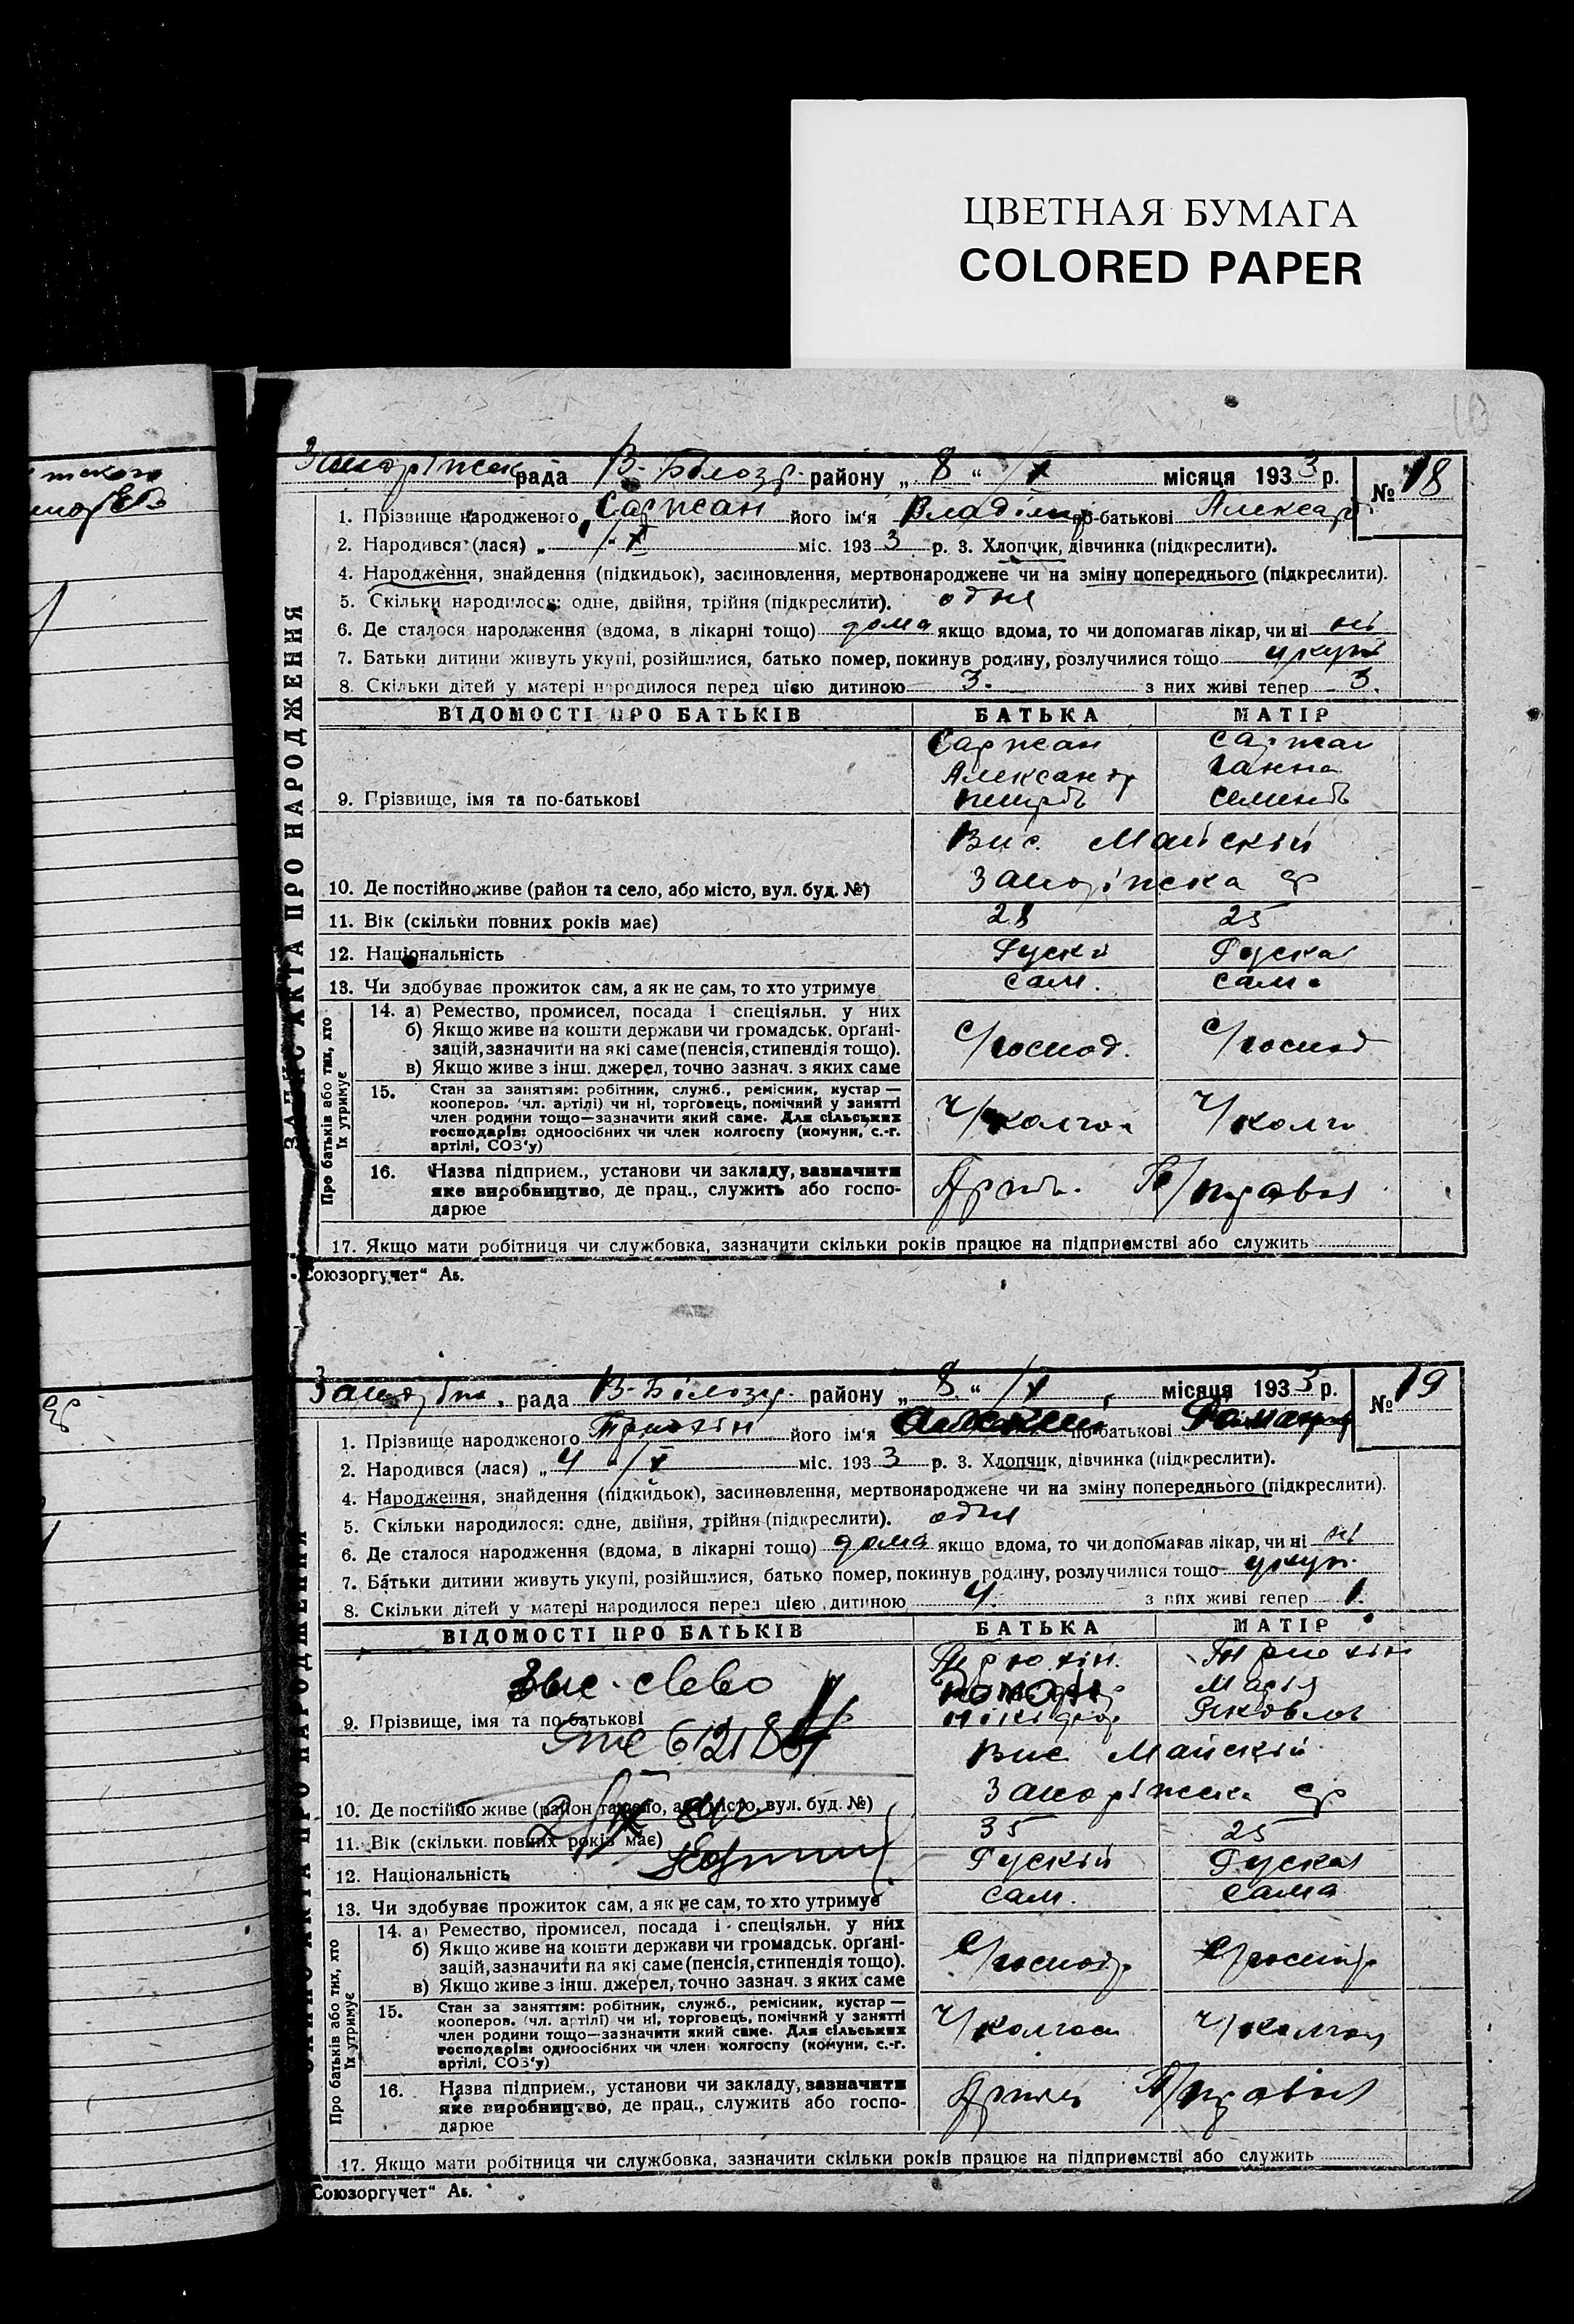 ЦВЕТНАЯ БУМАГА
COLORED PAPER
рада В-Білозр. району „ 8 “ /X місяця 1933 р. № 18
ЗАПИС АКТА ПРО НАРОДЖЕННЯ
1. Прізвище народженого Саржан його ім'я Владімір по-батькові Александ
2. Народився (лася) „ /X міс. 1933 р. 3. Хлопчик, дівчинка (підкреслити).
4. Народження, знайдення (підкидьок), засиновлення, мертвонароджене чи на зміну попереднього (підкреслити).
5. Скільки народилося: одне, двійня, трійня (підкреслити). одня
6. Де сталося народження (вдома, в лікарні тощо) дома якщо вдома, то чи допомагав лікар, чи ні ні
7. Батьки дитини живуть укупі, розійшлися, батько помер, покинув родину, розлучилися тощо укупі
8. Скільки дітей у матері народилося перед цією дитиною 3. з них живі тепер 3.
ВІДОМОСТІ ПРО БАТЬКІВ БАТЬКА МАТІР
Саржан Саржан
Александр Ганна
9. Прізвище, імя та по-батькові
Вис. Майскій
10. Де постійно живе (район та село, або місто, вул. буд. №)
11. Вік (скільки повних років має) 28 25
12. Національність Руский Руская
13. Чи здобуває прожиток сам, а як не сам, то хто утримує сам. сама
Про батьків або тих, хто їх утримує
14. а) Ремество, промисел, посада і спеціяльн. у них
б) Якщо живе на кошти держави чи громадськ. органі-
зацій, зазначити на які саме (пенсія, стипендія тощо). С/господ. С/господ
в) Якщо живе з інш. джерел, точно зазнач. з яких саме
15. Стан за заняттям: робітник, служб., ремісник, кустар —
кооперов. (чл. артілі) чи ні, торговець, помічний у занятті
член родини тощо—зазначити який саме. Для сільських Ч/колгос Ч/колго
господарів: одноосібних чи член колгоспу (комуни, с.-г.
артілі, СОЗ'у)
16. Назва підприєм., установи чи закладу, зазначити
яке виробництво, де прац., служить або госпо-
дарює
17. Якщо мати робітниця чи службовка, зазначити скільки років працює на підприємстві або служить
Союзоргучет“ Аб.
рада В-Білозр. району „ 8 “ /X місяця 1933 р. № 19
1. Прізвище народженого Трюхін його ім'я по-батькові
2. Народився (лася) „ 4 “ /X міс. 1933 р. 3. Хлопчик, дівчинка (підкреслити).
4. Народження, знайдення (підкидьок), засиновлення, мертвонароджене чи на зміну попереднього (підкреслити).
5. Скільки народилося: одне, двійня, трійня (підкреслити). одня
6. Де сталося народження (вдома, в лікарні тощо) дома якщо вдома, то чи допомагав лікар, чи ні ні
7. Батьки дитини живуть укупі, розійшлися, батько помер, покинув родину, розлучилися тощо укуп.
8. Скільки дітей у матері народилося перед цією дитиною 4. з них живі тепер 1.
ВІДОМОСТІ ПРО БАТЬКІВ БАТЬКА МАТІР
Марія
9. Прізвище, імя та по-батькові Яковлев
Вис Майскій
10. Де постійно живе (район та село, або місто, вул. буд. №)
11. Вік (скільки повних років має) 35 25
12. Національність Рускій Руская
13. Чи здобуває прожиток сам, а як не сам, то хто утримує сам. сама
Про батьків або тих, хто їх утримує
14. а) Ремество, промисел, посада і спеціяльн. у них
б) Якщо живе на кошти держави чи громадськ. органі-
зацій, зазначити на які саме (пенсія, стипендія тощо). С/господр
в) Якщо живе з інш. джерел, точно зазнач. з яких саме
15. Стан за заняттям: робітник, служб., ремісник, кустар —
кооперов. (чл. артілі) чи ні, торговець, помічний у занятті
член родини тощо—зазначити який саме. Для сільських Ч/колгосп
господарів: одноосібних чи член колгоспу (комуни, с.-г.
артілі, СОЗ'у)
16. Назва підприєм., установи чи закладу, зазначити
яке виробництво, де прац., служить або госпо-
дарює
17. Якщо мати робітниця чи службовка, зазначити скільки років працює на підприємстві або служить
Союзоргучет“ Аб.